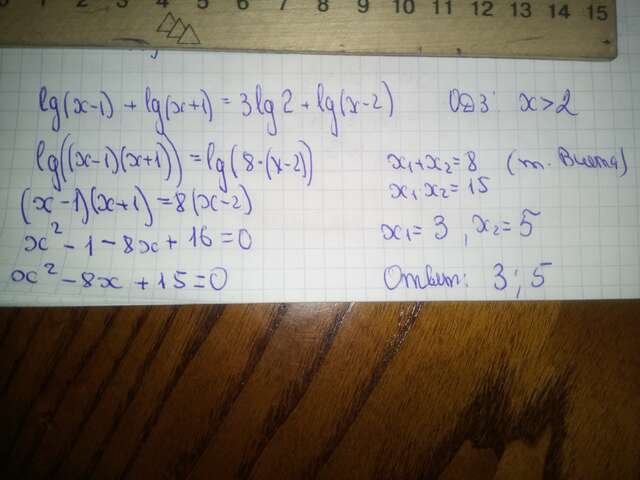 3 4 5 6 7 8 9 10 11 12 13 14 15
lg(x-1) + lg(x+1) = 3lg2 + lg(x-2) ОДЗ: x>2
lg((x-1)(x+1)) = lg(8·(x-2))
(x-1)(x+1) = 8(x-2)
x² - 1 - 8x + 16 = 0
x² - 8x + 15 = 0
x₁+x₂=8 (т. Виета)
x₁x₂=15
x₁= 3, x₂= 5
Ответ: 3; 5